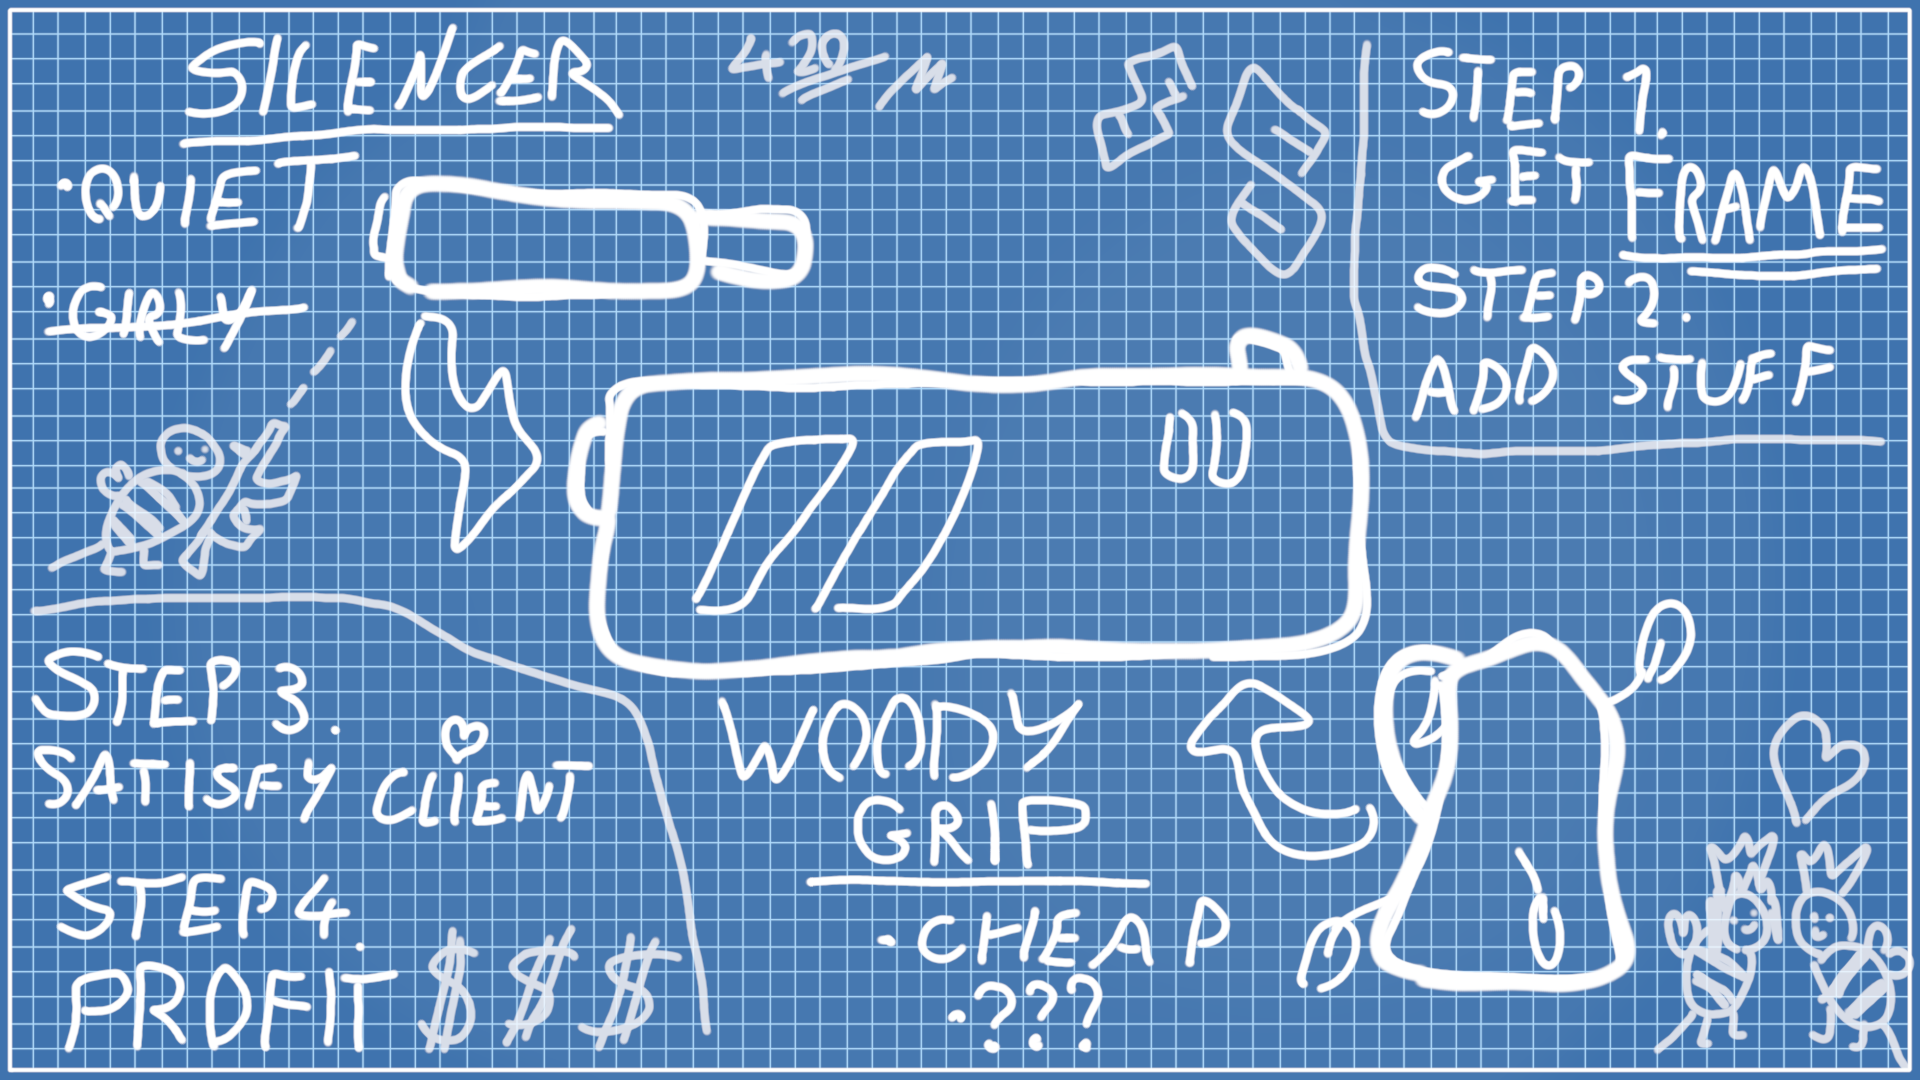 SILENCER
·QUIET
·GIRLY
420/M
STEP 1.
GET FRAME
STEP 2.
ADD STUFF
STEP 3.
SATISFY CLIENT
STEP 4.
PROFIT $$$
WOODY
GRIP
·CHEAP
·???